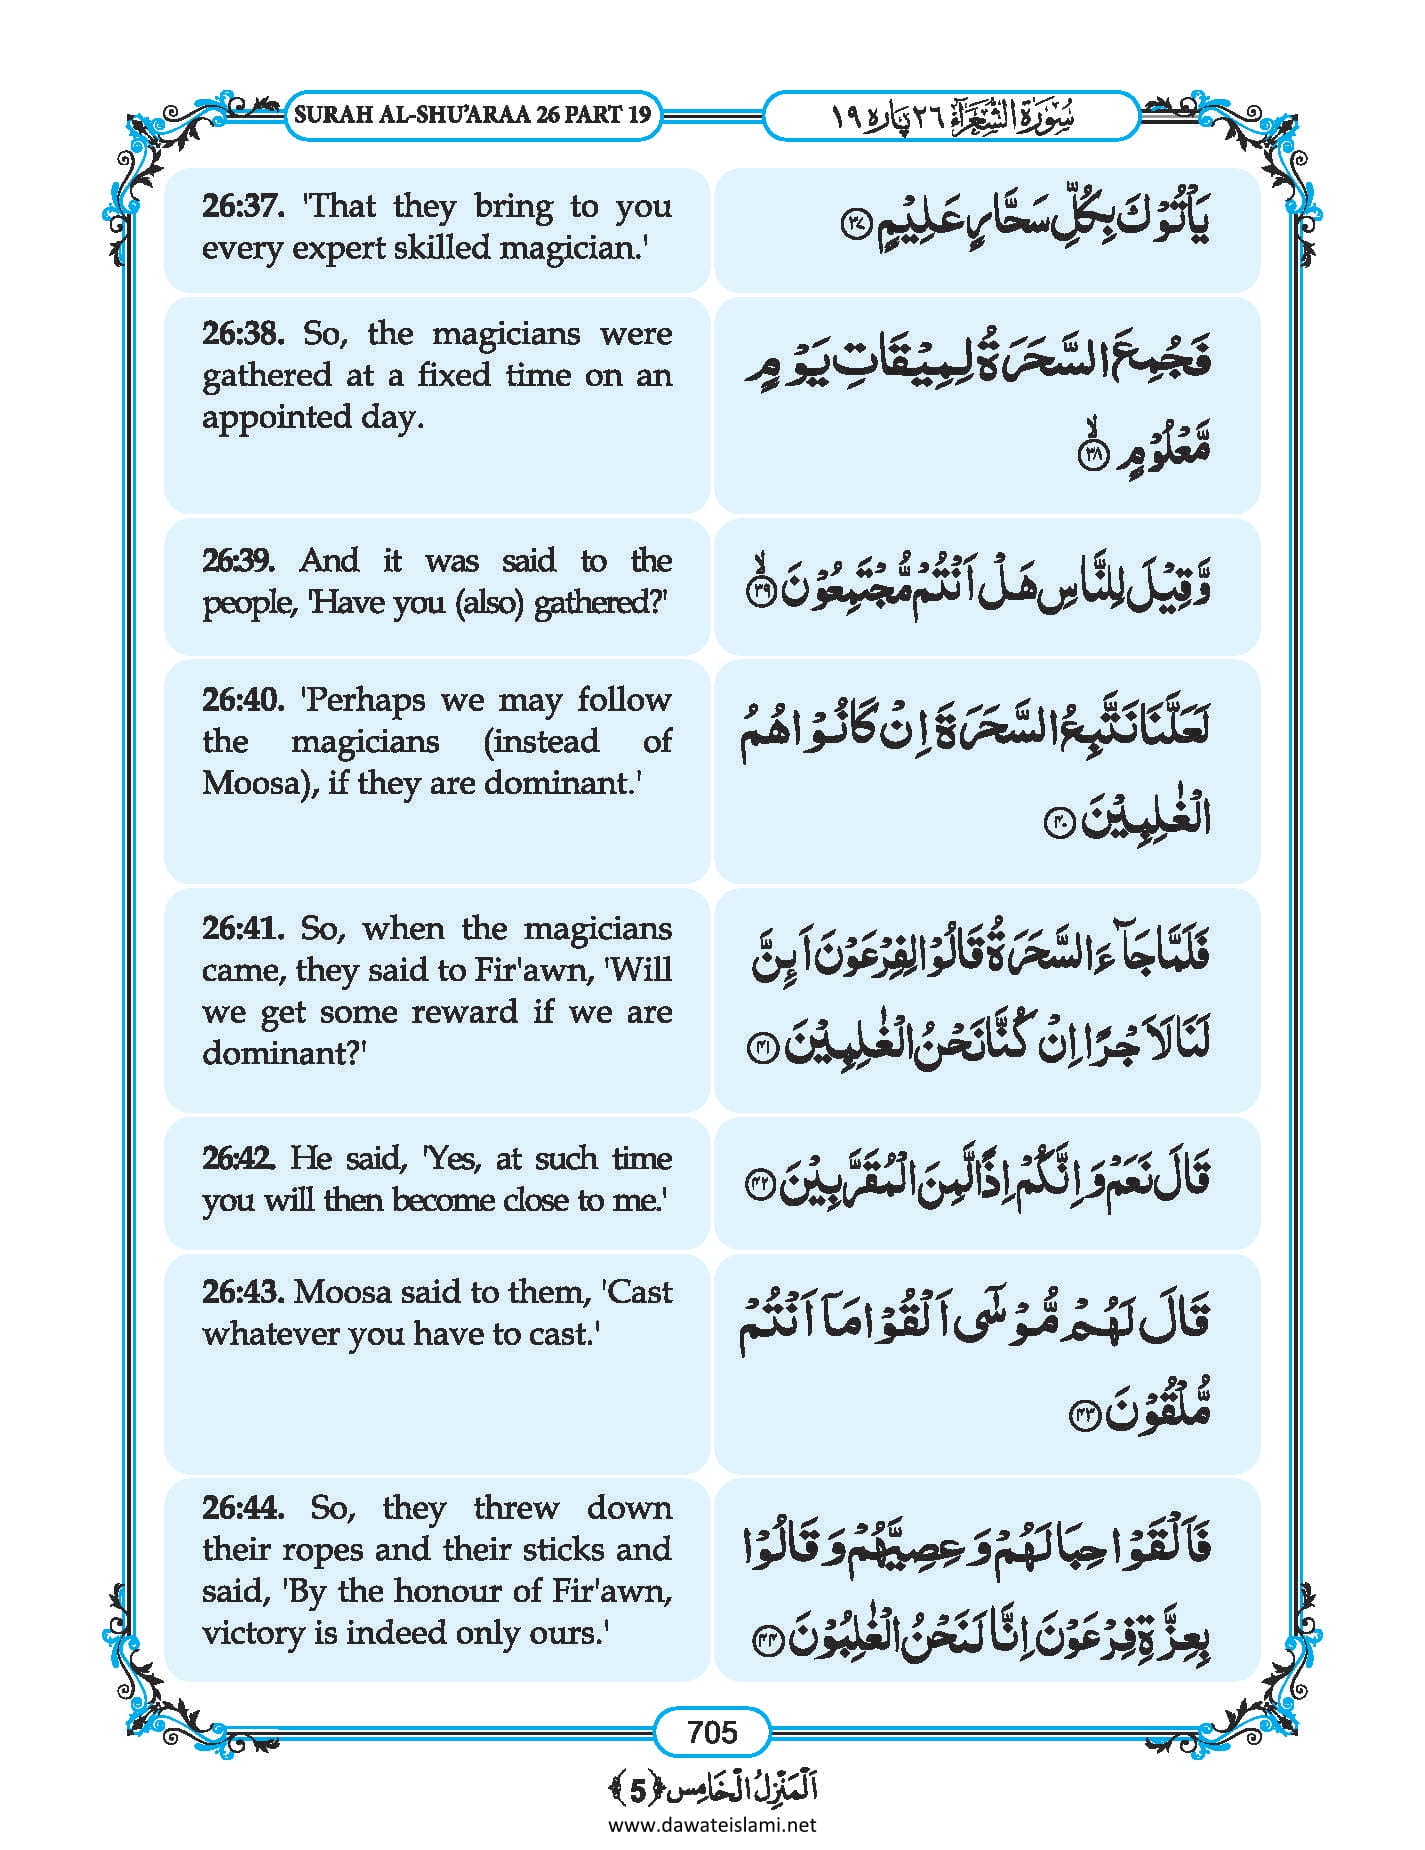 SURAH AL-SHU'ARAA 26 PART 19
سُوْرَةُ الشُّعَرَآءِ ٢٦ پَارہ ١٩
26:37. 'That they bring to you
every expert skilled magician.'
يَاْتُوْكَ بِكُلِّ سَحَّارٍ عَلِيْمٍ ۝٣٧
26:38. So, the magicians were
gathered at a fixed time on an
appointed day.
فَجُمِعَ السَّحَرَةُ لِمِيْقَاتِ يَوْمٍ
مَّعْلُوْمٍ ۝٣٨ۙ
26:39. And it was said to the
people, 'Have you (also) gathered?'
وَّقِيْلَ لِلنَّاسِ هَلْ اَنْتُمْ مُّجْتَمِعُوْنَ ۝٣٩ۙ
26:40. 'Perhaps we may follow
the magicians (instead of
Moosa), if they are dominant.'
لَعَلَّنَا نَتَّبِعُ السَّحَرَةَ اِنْ كَانُوْا هُمُ
الْغٰلِبِيْنَ ۝٤٠
26:41. So, when the magicians
came, they said to Fir'awn, 'Will
we get some reward if we are
dominant?'
فَلَمَّا جَآءَ السَّحَرَةُ قَالُوْا لِفِرْعَوْنَ اَىِٕنَّ
لَنَا لَاَجْرًا اِنْ كُنَّا نَحْنُ الْغٰلِبِيْنَ ۝٤١
26:42. He said, 'Yes, at such time
you will then become close to me.'
قَالَ نَعَمْ وَ اِنَّكُمْ اِذًا لَّمِنَ الْمُقَرَّبِيْنَ ۝٤٢
26:43. Moosa said to them, 'Cast
whatever you have to cast.'
قَالَ لَهُمْ مُّوْسٰۤى اَلْقُوْا مَاۤ اَنْتُمْ
مُّلْقُوْنَ ۝٤٣
26:44. So, they threw down
their ropes and their sticks and
said, 'By the honour of Fir'awn,
victory is indeed only ours.'
فَاَلْقَوْا حِبَالَهُمْ وَ عِصِيَّهُمْ وَ قَالُوْا
بِعِزَّةِ فِرْعَوْنَ اِنَّا لَنَحْنُ الْغٰلِبُوْنَ ۝٤٤
705
اَلْمَنْزِلُ الْخَامِس ﴿5﴾
www.dawateislami.net